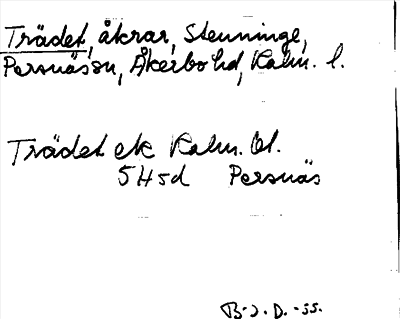 Trädet, åkrar, Stenninge,
Persnäs sn, Åkerbo hd, Kalm. l.
Trädet ek Kalm. bl.
5H5d Persnäs
B-J. D. -55.